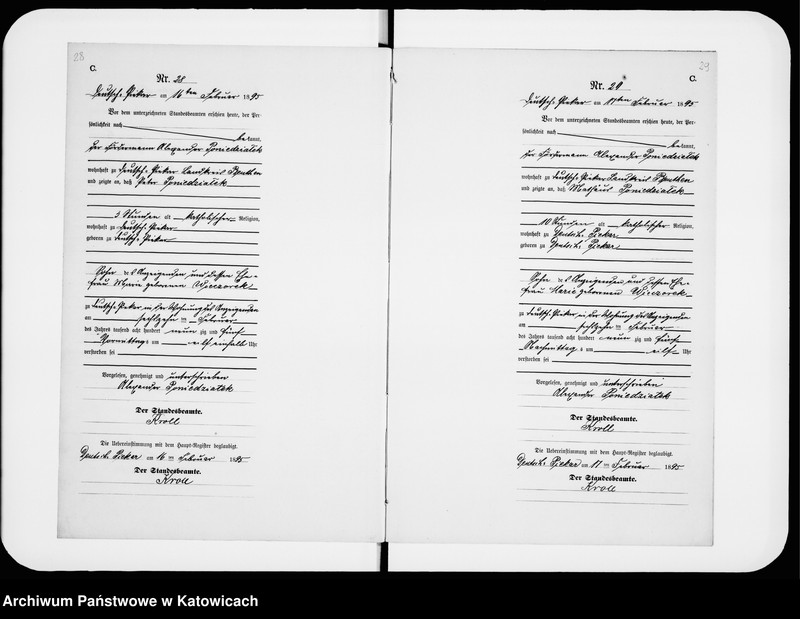 28
C.
Nr. 28
Deutsch Piekar am 16ten Februar 1895
Vor dem unterzeichneten Standesbeamten erschien heute, der Per-
sönlichkeit nach
bekannt,
der Fördermann Alexander Poniedzialek
wohnhaft zu Deutsch Piekar Landkreis Beuthen
und zeigte an, daß Peter Poniedzialek
3 Stunden alt katholischer Religion,
wohnhaft zu Deutsch Piekar
geboren zu Deutsch Piekar
Sohn des Anzeigenden und dessen Ehe-
frau Marie geborenen Wieczorek
zu Deutsch Piekar in der Wohnung des Anzeigenden
am sechszehn ten Februar
des Jahres tausend acht hundert neunzig und fünf
Vormittags um elf einhalb Uhr
verstorben sei
Vorgelesen, genehmigt und unterschrieben
Alexander Poniedzialek
Der Standesbeamte.
Kroll
Die Uebereinstimmung mit dem Haupt-Register beglaubigt.
Deutsch Piekar am 16 ten Februar 1895
Der Standesbeamte.
Kroll
29
C.
Nr. 29
Deutsch Piekar am 17ten Februar 1895
Vor dem unterzeichneten Standesbeamten erschien heute, der Per-
sönlichkeit nach
bekannt,
der Fördermann Alexander Poniedzialek
wohnhaft zu Deutsch Piekar Landkreis Beuthen
und zeigte an, daß Mathäus Poniedzialek
10 Stunden alt katholischer Religion,
wohnhaft zu Deutsch Piekar
geboren zu Deutsch Piekar
Sohn des Anzeigenden und dessen Ehe-
frau Marie geborenen Wieczorek
zu Deutsch Piekar in der Wohnung des Anzeigenden
am sechszehn ten Februar
des Jahres tausend acht hundert neunzig und fünf
Nachmittags um elf Uhr
verstorben sei
Vorgelesen, genehmigt und unterschrieben
Alexander Poniedzialek
Der Standesbeamte.
Kroll
Die Uebereinstimmung mit dem Haupt-Register beglaubigt.
Deutsch Piekar am 17 ten Februar 1895
Der Standesbeamte.
Kroll
Archiwum Państwowe w Katowicach